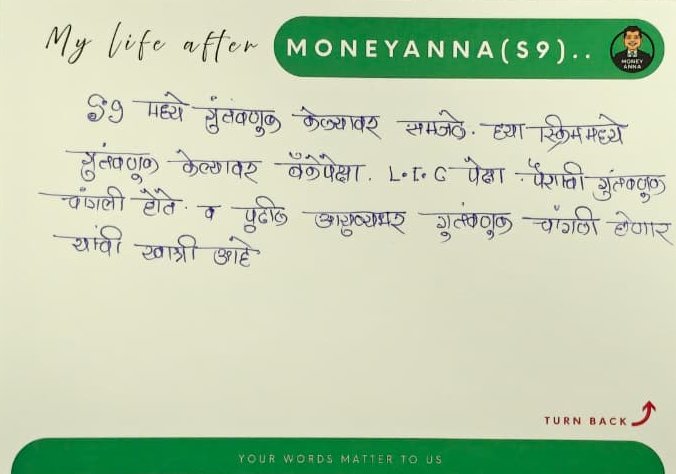 My life after MONEYANNA(S9)..
MONEY
ANNA
S9 मध्ये गुंतवणूक केल्यावर समजले. ह्या स्किममध्ये
गुंतवणूक केल्यावर बँकेपेक्षा. L.I.C पेक्षा पैशाची गुंतवणूक
चांगली होते. व पुढील आयुष्यभर गुतवणूक चांगली होणार
यांची खात्री आहे
TURN BACK
YOUR WORDS MATTER TO US